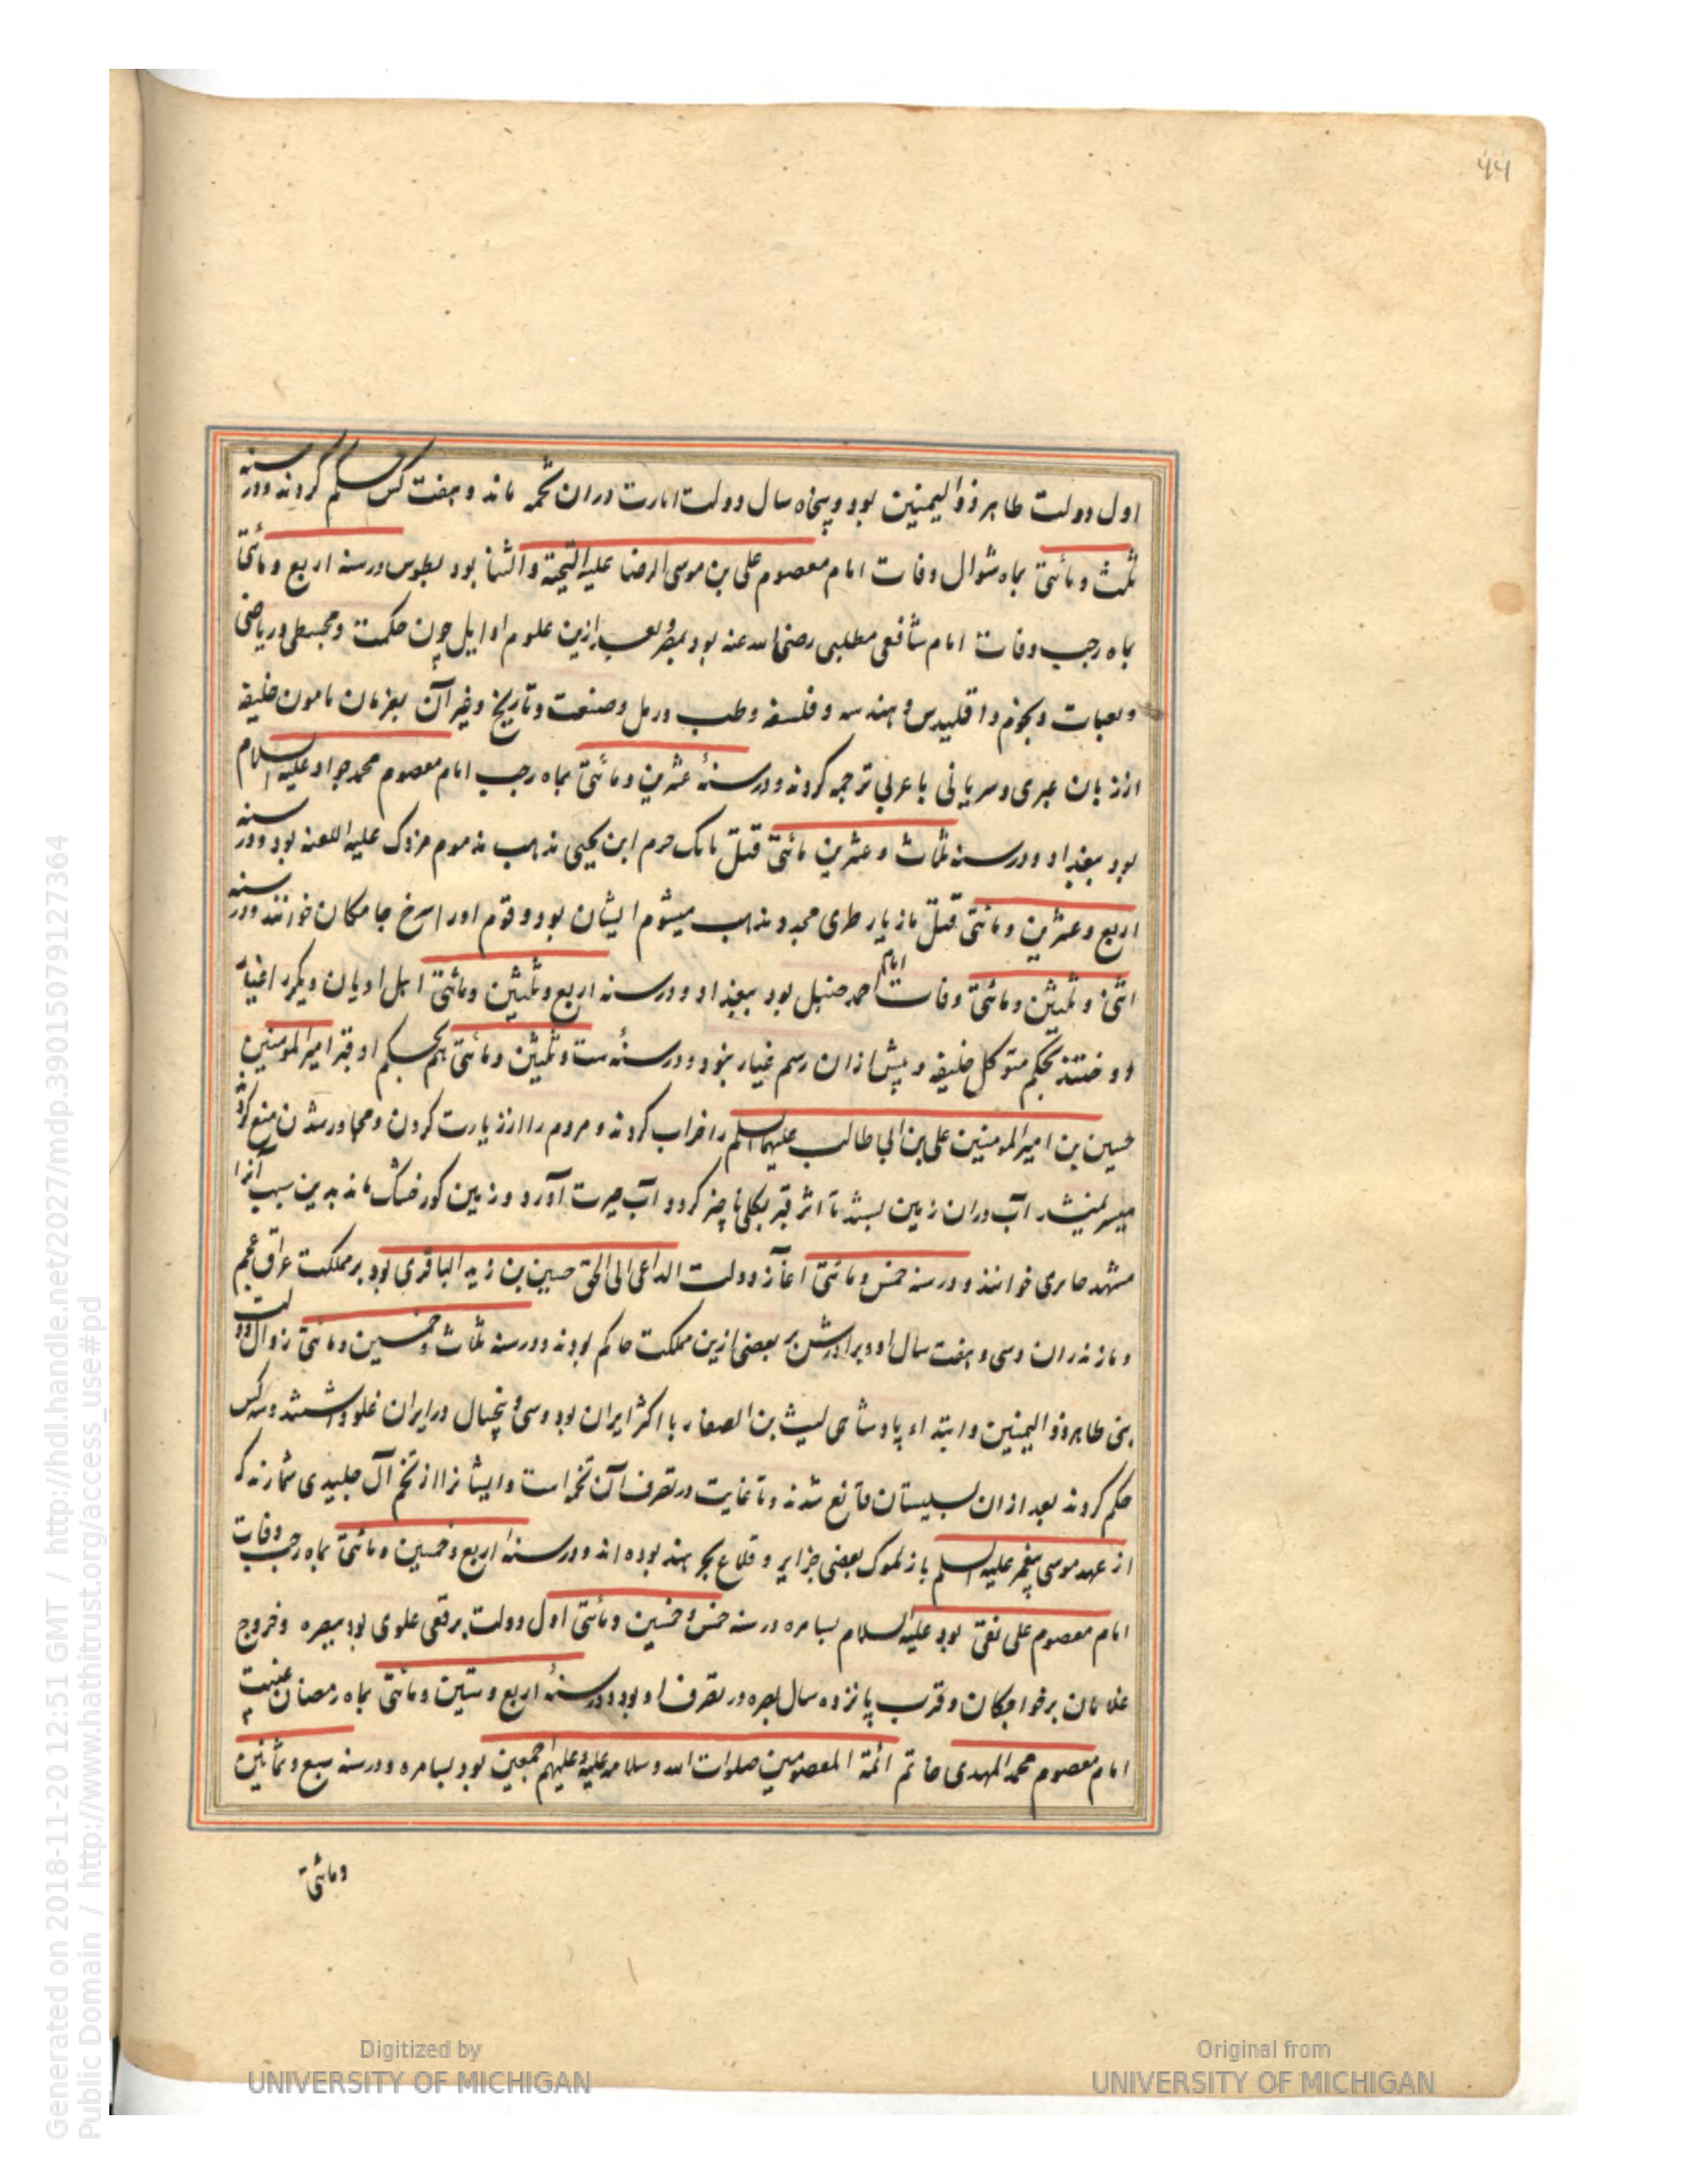 ۴۴
اول دولت طاهر ذو الیمینین بود و پنجاه سال دولت امارت دران تخمه ماند و هفت کس حکم کردند و در سنه
ثلث و مأتی بماه شوال وفات امام معصوم علی بن موسی الرضا علیه التحیة و الثنا بود بطوس در سنه اربع و مأتی
بماه رجب وفات امام شافعی مطلبی رضی الله عنه بود بمصر و بعد ازین علوم اوایل چون حکمت و مجسطی و ریاضی
و نجوم و اقلیدس و هندسه و فلسفه و طب و رمل و صنعت و تاریخ و غیر آن بفرمان مامون خلیفه
از زبان عبری و سریانی با عربی ترجمه کردند و در سنهٔ عشرین و مأتی بماه رجب امام معصوم محمد جواد علیه السلام
بود ببغداد و در سنه ثلاث و عشرین مأتی قتل بابک خرم ابن یحیی مذهب مذموم مزدک علیه اللعنه بود و در سنه
اربع و عشرین و مأتی قتل مازیار طبری مجدد مذهب میشوم ایشان بود و قوم او را سرخ جامکان خوانند و در سنه
اثنی و ثلثین و مأتی وفات امام احمد حنبل بود ببغداد و در سنه اربع و ثلثین و مأتی اهل ادیان دیگر را غیار
دوختند بحکم متوکل خلیفه و پیش ازان رسم غیار نبود و در سنهٔ ست و ثلثین و مأتی هم بحکم او قبر امیر المومنین
حسین بن امیر المومنین علی بن ابی طالب علیهما السلم را خراب کردند و مردم را از زیارت کردن و مجاور شدن منع کرد
میسر نمیشد آب دران زمین بستند تا اثر قبر بکلی ناچیز کردد آب حیرت آورد و زمین کور خشک ماند بدین سبب آنرا
مشهد حایری خوانند و در سنه خمس و مأتی آغاز دولت الداعی الی الحق حسین بن زید الباقری بود بر مملکت عراق عجم
و مازندران و سی و هفت سال او و برادرش بر بعضی ازین مملکت حاکم بودند و در سنه ثلاث و خمسین و مأتی زوال دولت
بنی طاهر ذو الیمینین و ابتداء پادشاهی لیث بن الصفار با اکثر ایران بود و سی و پنجسال در ایران غلو داشتند و سه کس
حکم کردند بعد ازان بسیستان قانع شدند و تا غایت در تصرف آن تخمه است و ایشانرا از تخم آل جلیدی شمارند که
از عهد موسی پیغمبر علیه السلم باز ملوک بعضی جزایر و قلاع بحر هند بوده اند و در سنهٔ اربع و خمسین و مأتی بماه رجب وفات
امام معصوم علی نقی بود علیه السلام بسامره در سنه خمس و خمسین و مأتی اول دولت برقعی علوی بود ببصره و خروج
غلامان بر خواجکان و قرب پانزده سال بصره در تصرف او بود و در سنهٔ اربع و ستین و مأتی بماه رمضان غیبت
امام معصوم محمد المهدی خاتم ائمة المعصومین صلوات الله و سلامه علیه و علیهم اجمعین بود بسامره و در سنه سبع و ثمانین
و مأتی
Generated on 2018-11-20 12:51 GMT / http://hdl.handle.net/2027/mdp.39015079127364
Public Domain / http://www.hathitrust.org/access_use#pd
Digitized by
UNIVERSITY OF MICHIGAN
Original from
UNIVERSITY OF MICHIGAN